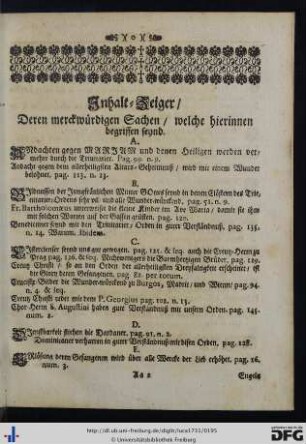 X o X
Inhalt-Zeiger/
Deren merckwürdigen Sachen/ welche hierinnen
begriffen seynd.
A.
ANdachten gegen MARIAM und denen Heiligen werden ver-
mehrt durch die Trinitarier. Pag. n. 9.
Andacht gegen dem allerheiligsten Altars-Geheimnuß/ wird mit einem Wunder
belohnet. pag. 113. n. 23.
B.
BIldnussen der Jungfräulichen Mutter GOttes seynd in denen Clöstern des Tri-
nitarier-Ordens sehr vil und alle Wunderwürckend. pag. 51. n. 9.
F. Bartholomæus unterweiset die kleine Kinder im Ave Maria/ damit sie ihm
mit solchen Worten auf der Gassen grüssen. pag. 127.
Benedictiner seynd mit den Trinitarier-Orden in guter Verständnuß. pag. 155.
n. 14. Warum. ibidem.
C.
CIstercienser seynd uns gut gewogen. pag. 121. & seq. auch die Creutz-Herren zu
Prag pag. 126. & seq. Nichtweniger die Barmhertzigen Brüder. pag. 129.
Creutz Christi/ so an den Orden der allerheiligsten Dreyfaltigkeit erscheinet/ ist
der Gott deren Gefangenen. pag. 21. per totum.
Crucifix Bilder die Wunderwürckend zu Burgos, Madrit, und Wienn: pag. 94.
n. 4. & seq.
Creutz Christi redet mit dem P. Georgius pag. 102. n. 15.
Chor-Herrn S. Augustini haben gute Verständnuß mit unsern Orden. pag. 145.
num. 2.
D.
DIenstbarkeit fliehen die Dardaner. pag. 21. n. 2.
Dominicaner verharren in guter Verständnuß mit disem Orden. pag. 128.
E.
ERlösung deren Gefangenen wird über alle Wercke der Lieb erhöhet. pag. 26.
num. 3.
Aa 2 Engels
http://dl.ub.uni-freiburg.de/diglit/luca1751/0195
© Universitätsbibliothek Freiburg
gefördert durch die
DFG